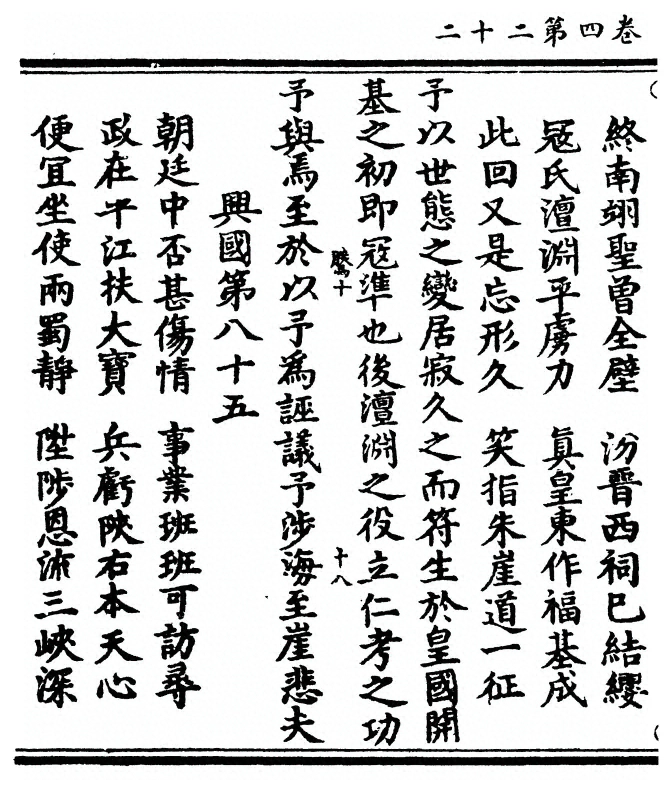 卷四第二十二
終南翊聖曾全璧　汾晉西祠已結纓
冦氏澶淵平虜力　眞皇東作福基成
此回又是忘形久　笑指朱崖道一征
予以世態之變居寂久之而符生於皇國開
基之初即冦準也後澶淵之役立仁考之功
十八
予與焉至於以予爲誣議予涉海至崖悲夫
興國第八十五
朝廷中否甚傷情　事業班班可訪尋
政在平江扶大寶　兵虧陝右本天心
便宜坐使兩蜀靜　陞陟恩流三峽深